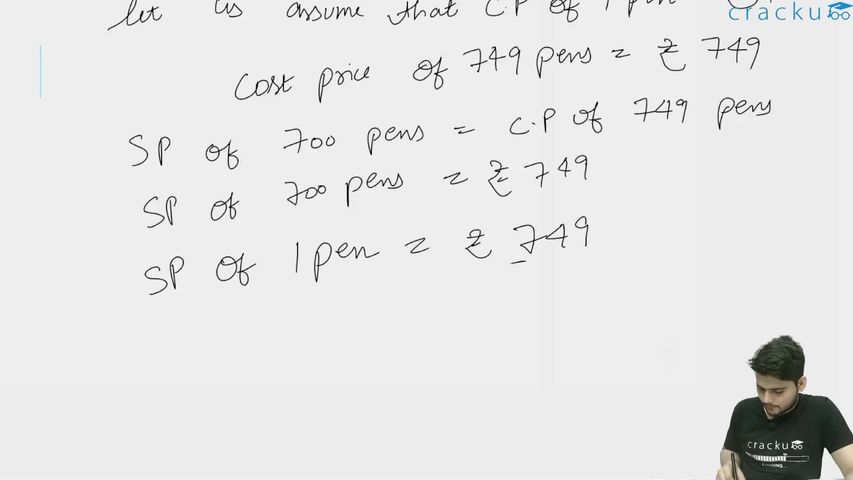 let us assume that C.P of 1 pen
cracku
Cost price of 749 pens = ₹ 749
SP of 700 pens = C.P of 749 pens
SP of 700 pens = ₹ 749
SP of 1 pen = ₹ 749
cracku
LOADING...